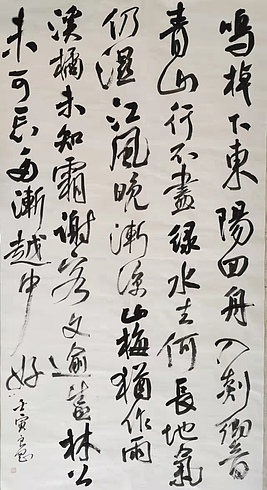 鳴棹下東陽回舟入剡鄉
青山行不盡綠水去何長地氣
仍濕江風晚漸涼山梅猶作雨
溪橘未知霜謝客文逾盛林公
未可忘多漸越中好
壬寅